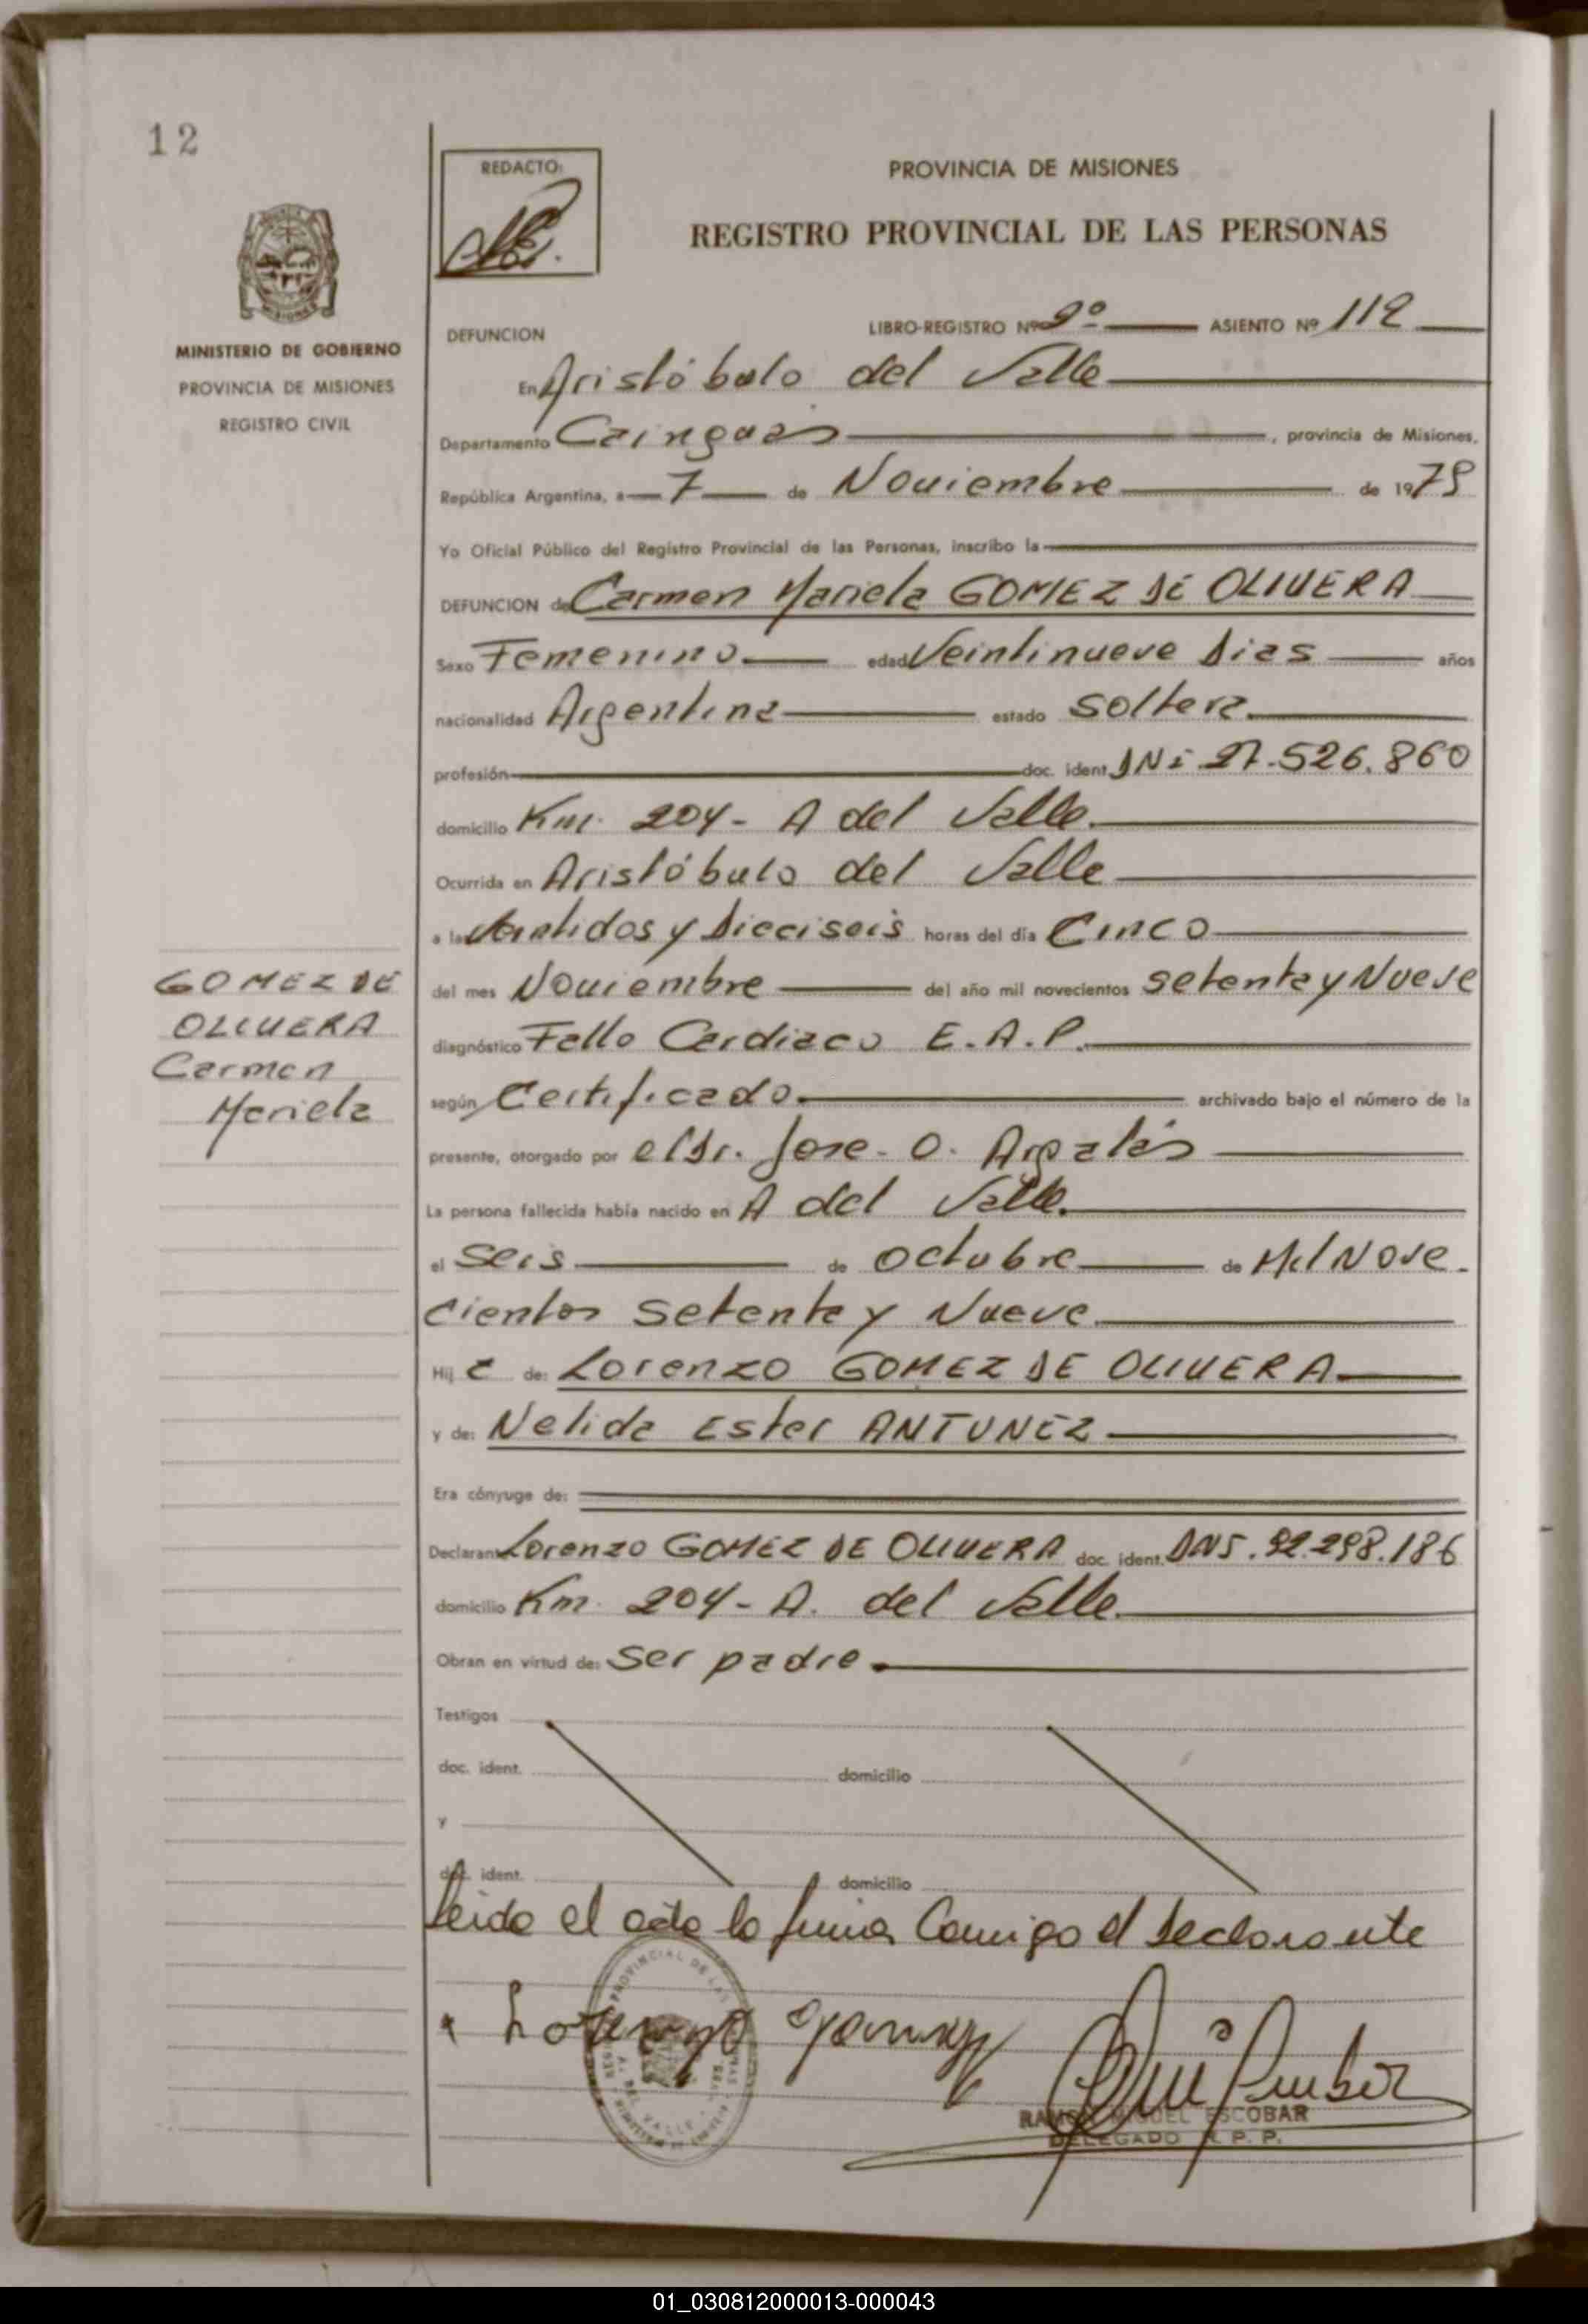 12
REDACTO:
PROVINCIA DE MISIONES
REGISTRO PROVINCIAL DE LAS PERSONAS
MINISTERIO DE GOBIERNO
PROVINCIA DE MISIONES
REGISTRO CIVIL
DEFUNCION
LIBRO-REGISTRO Nº 2º ASIENTO Nº 112
En Aristóbulo del Valle
Departamento Cainguás, provincia de Misiones,
República Argentina, a 7 de Noviembre de 1979
Yo Oficial Público del Registro Provincial de las Personas, inscribo la
DEFUNCION de Carmen Mariela GOMEZ DE OLIVERA
Sexo Femenino edad Veintinueve Dias años
nacionalidad Argentina estado Soltera
profesión doc. ident. DNi 27.526.860
domicilio Km. 204- A del Valle.
Ocurrida en Aristóbulo del Valle
a las Veintidos y Dieciseis horas del día Cinco
GOMEZ DE
OLIVERA
Carmen
Mariela
del mes Noviembre del año mil novecientos Setenta y Nueve
diagnóstico Fallo Cardiaco E.A.P.
según Certificado. archivado bajo el número de la
presente, otorgado por el Dr. Jose. O.
La persona fallecida había nacido en A del Valle.
el Seis de Octubre de Mil Nove-
cientos Setenta y Nueve
Hija de: Lorenzo GOMEZ DE OLIVERA
y de: Nelida Ester ANTUNEZ
Era cónyuge de:
Declarante Lorenzo GOMEZ DE OLIVERA doc. ident. DNI. 92.298.186
domicilio Km. 204- A. del Valle.
Obran en virtud de: Ser padre.
Testigos
doc. ident. domicilio
y
doc. ident. domicilio
Leido el acta lo firma Conmigo el Declarante
RAMON MIGUEL ESCOBAR
DELEGADO R. P. P.
01_030812000013-000043